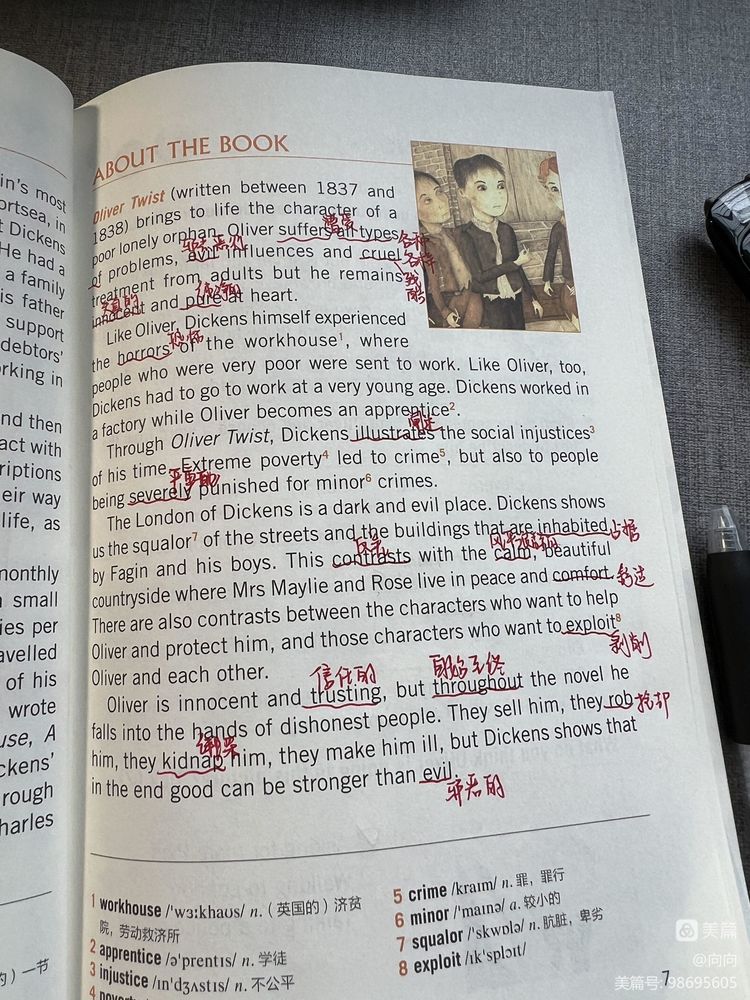 in's most
ortsea, in
t Dickens
He had a
a family
is father
support
debtors'
orking in
nd then
act with
riptions
eir way
life, as
monthly
small
ies per
avelled
of his
wrote
use, A
ckens'
rough
harles
的）一节
ABOUT THE BOOK
Oliver Twist (written between 1837 and
1838) brings to life the character of a
poor lonely orphan. Oliver suffers all types
遭受
各种
of problems, evil influences and cruel
邪恶
各种
残酷
treatment from adults but he remains
天真的
innocent and pure at heart.
Like Oliver, Dickens himself experienced
恐怖
the horrors of the workhouse1, where
people who were very poor were sent to work. Like Oliver, too,
Dickens had to go to work at a very young age. Dickens worked in
a factory while Oliver becomes an apprentice2.
阐述
Through Oliver Twist, Dickens illustrates the social injustices3
of his time. Extreme poverty4 led to crime5, but also to people
being severely punished for minor6 crimes.
The London of Dickens is a dark and evil place. Dickens shows
us the squalor7 of the streets and the buildings that are inhabited
占据
by Fagin and his boys. This contrasts with the calm, beautiful
countryside where Mrs Maylie and Rose live in peace and comfort.
舒适
There are also contrasts between the characters who want to help
Oliver and protect him, and those characters who want to exploit8
剥削
Oliver and each other.
信任的
自始至终
Oliver is innocent and trusting, but throughout the novel he
falls into the hands of dishonest people. They sell him, they rob
抢劫
绑架
him, they kidnap him, they make him ill, but Dickens shows that
in the end good can be stronger than evil
邪恶的
1 workhouse /'wɜːkhaʊs/ n.（英国的）济贫
院，劳动救济所
2 apprentice /ə'prentɪs/ n. 学徒
3 injustice /ɪn'dʒʌstɪs/ n. 不公平
5 crime /kraɪm/ n. 罪，罪行
6 minor /'maɪnə/ a. 较小的
7 squalor /'skwɒlə/ n. 肮脏，卑劣
8 exploit /ɪk'splɔɪt/
7
美篇
@向向
美篇号:98695605